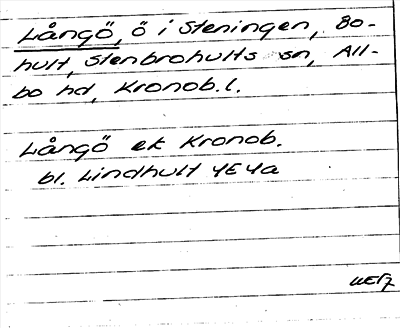 Långö, ö i Steningen, Bo-
hult, Stenbrohults sn, All-
bo hd, Kronob. l.
Långö ek Kronob.
bl. Lindhult 4E4a